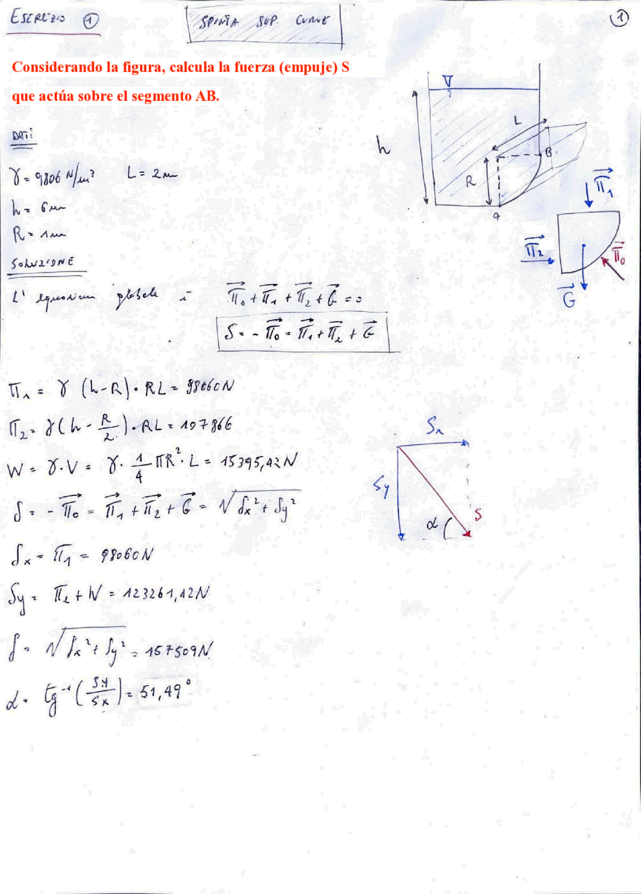 ESERCIZIO ①
SPINTA SUP. CURVE
①
Considerando la figura, calcula la fuerza (empuje) S
que actúa sobre el segmento AB.
DATI
γ = 9806 N/m³ L = 2m
h = 6m
R = 1m
SOLUZIONE
L' equazione globale è Π₀ + Π₁ + Π₂ + G = 0
S = - Π₀ = Π₁ + Π₂ + G
h
L
R
B
A
Π₁
Π₂
Π₀
G
Π₁ = γ (h-R) · RL = 98060N
Π₂ = γ (h - R/2) · RL = 107866
W = γ · V = γ · 1/4 πR² · L = 15395,42N
S = - Π₀ = Π₁ + Π₂ + G = √Sx² + Sy²
Sx = Π₁ = 98060N
Sy = Π₂ + W = 123261,42N
S = √Sx² + Sy² = 157509N
α = tg⁻¹ (Sy/Sx) = 51,49°
Sx
Sy
S
α